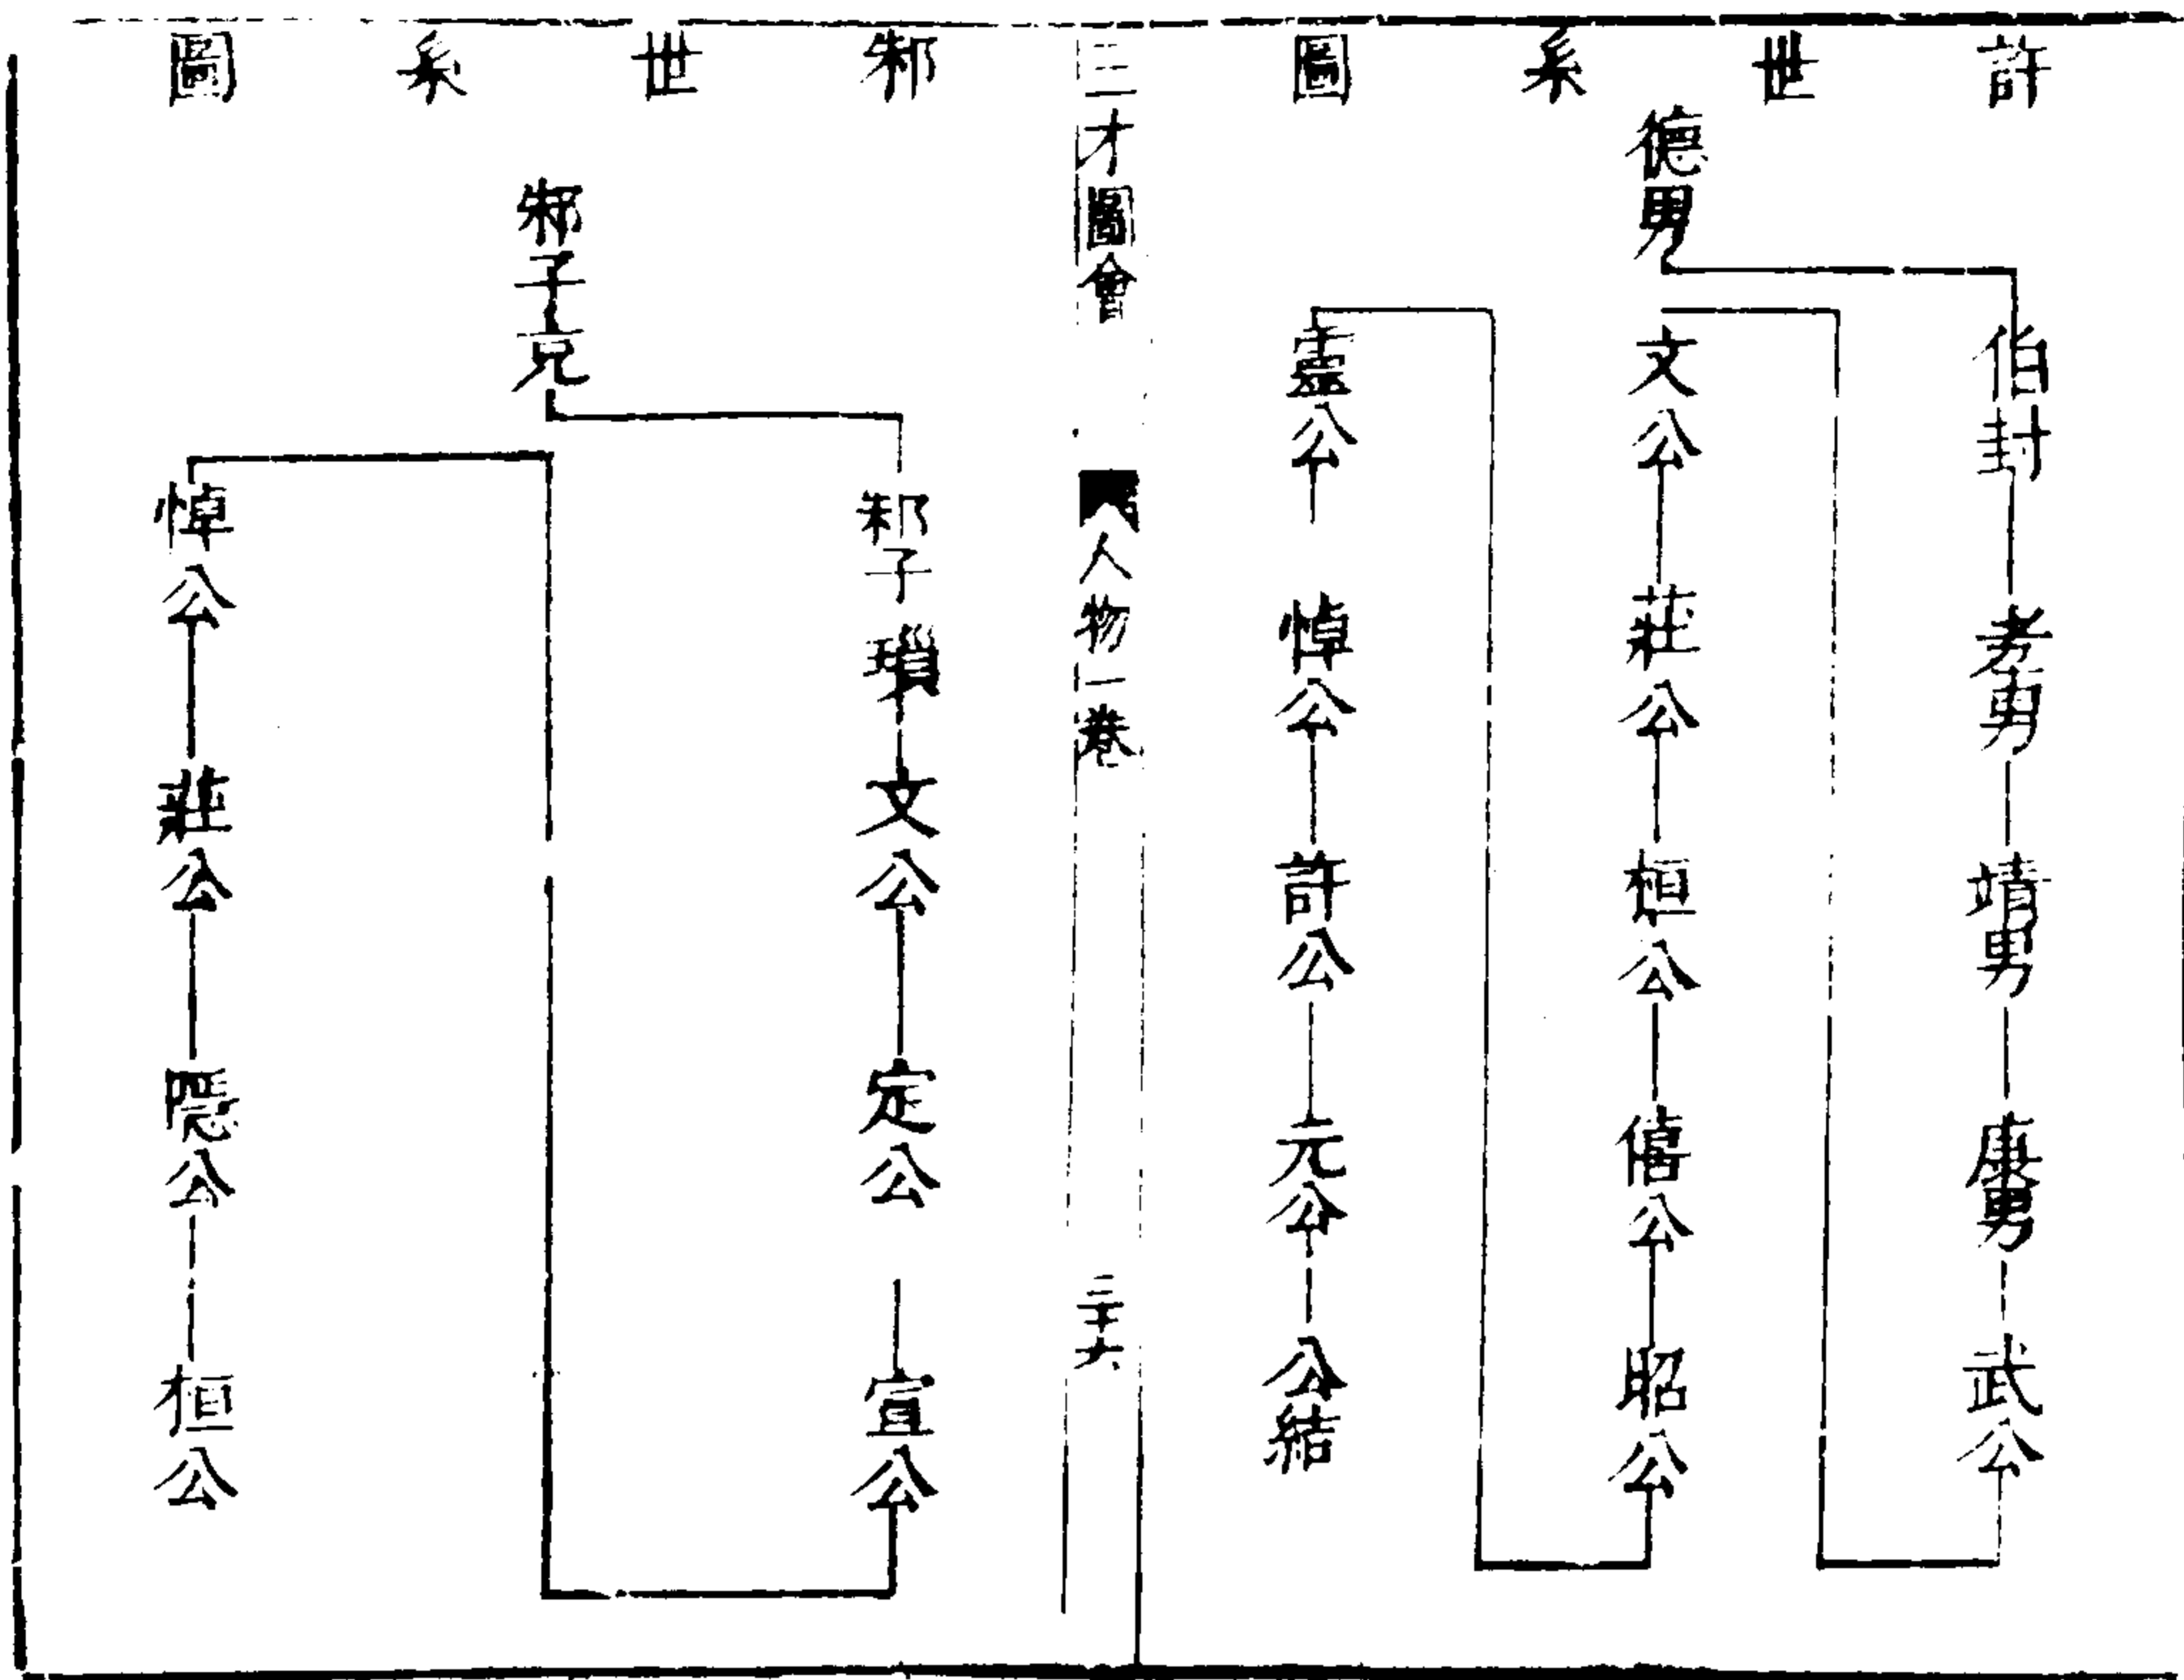 許世系圖
德男
伯封 孝男 靖男 康男 武公
文公 莊公 桓公 僖公 昭公
靈公 悼公 許公 元公 公結
三才圖會 人物一卷 三十六
邾世系圖
邾子克
邾子瑣 文公 定公 宣公
悼公 莊公 隱公 桓公